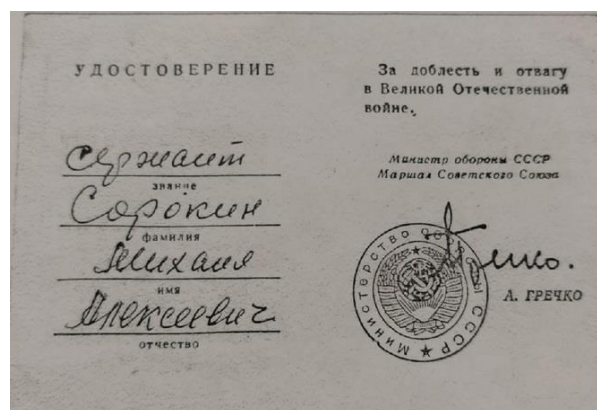 УДОСТОВЕРЕНИЕ
сержант
звание
Сорокин
фамилия
Михаил
имя
Алексеевич
отчество
За доблесть и отвагу
в Великой Отечественной
войне.
Министр обороны СССР
Маршал Советского Союза
А. ГРЕЧКО
Министерство обороны СССР